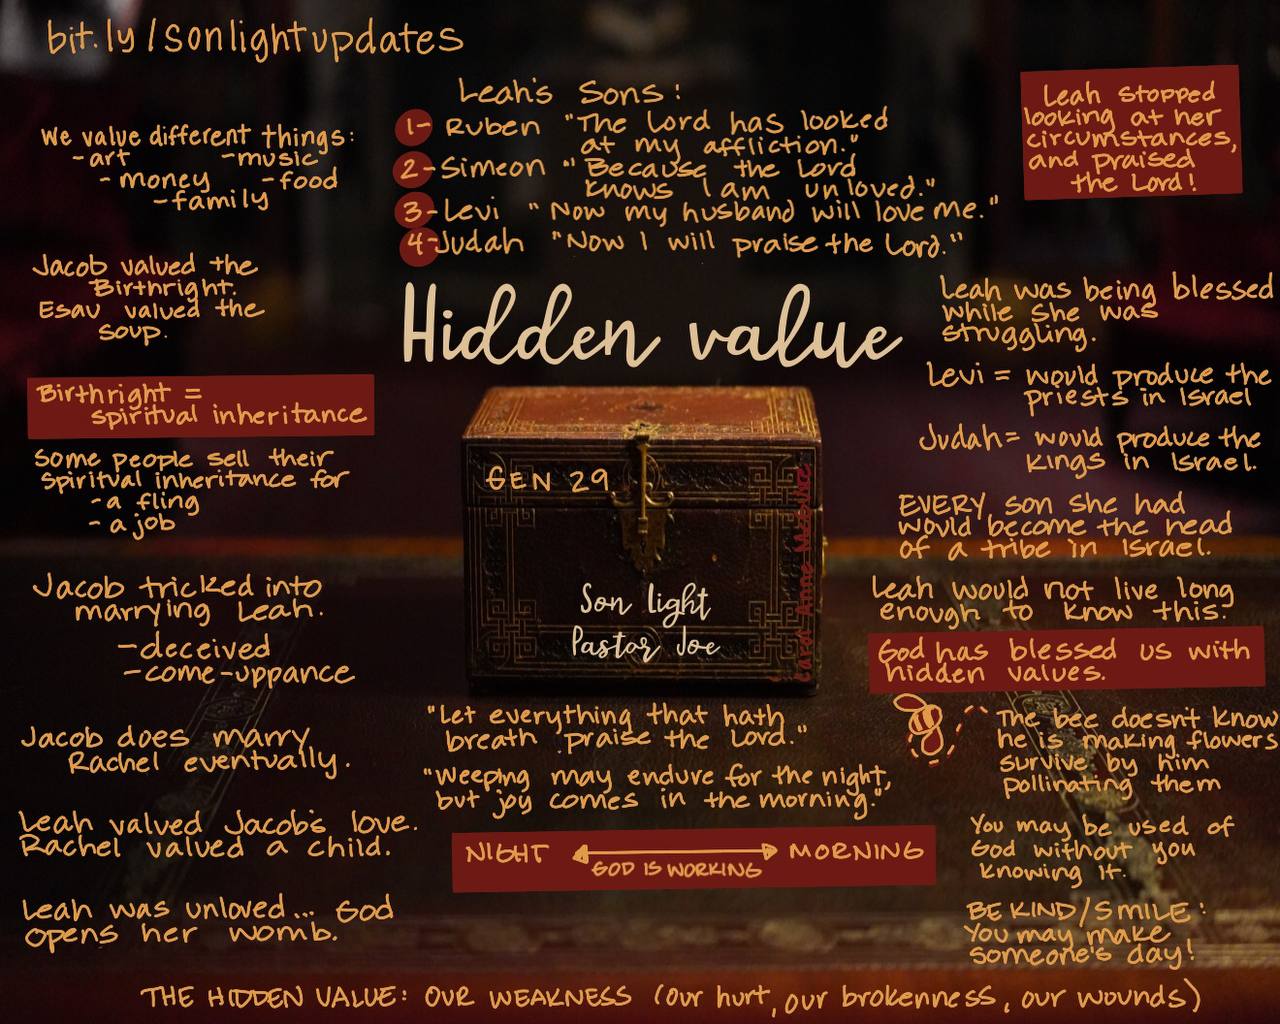 bit.ly/sonlightupdates
We value different things:
-art -music
-money -food
-family
Jacob valued the
Birthright.
Esau valued the
soup.
Birthright =
spiritual inheritance
Some people sell their
spiritual inheritance for
-a fling
-a job
Jacob tricked into
marrying Leah.
-deceived
-come-uppance
Jacob does marry
Rachel eventually.
Leah valued Jacob's love.
Rachel valued a child.
Leah was unloved... God
opens her womb.
Leah's Sons:
1- Ruben "The Lord has looked
at my affliction."
2- Simeon "Because the Lord
knows I am unloved."
3- Levi "Now my husband will love me."
4- Judah "Now I will praise the Lord."
Hidden value
GEN 29
Son light
Pastor Joe
Carol Anne McGuire
"Let everything that hath
breath praise the Lord."
"Weeping may endure for the night,
but joy comes in the morning."
NIGHT MORNING
GOD IS WORKING
Leah stopped
looking at her
circumstances,
and praised
the Lord!
Leah was being blessed
while she was
struggling.
Levi = would produce the
priests in Israel
Judah = would produce the
Kings in Israel.
EVERY son she had
would become the head
of a tribe in Israel.
Leah would not live long
enough to know this.
God has blessed us with
hidden values.
The bee doesn't know
he is making flowers
survive by him
pollinating them
You may be used of
God without you
knowing it.
BE KIND/SMILE:
You may make
someone's day!
THE HIDDEN VALUE: OUR WEAKNESS (our hurt, our brokenness, our wounds)